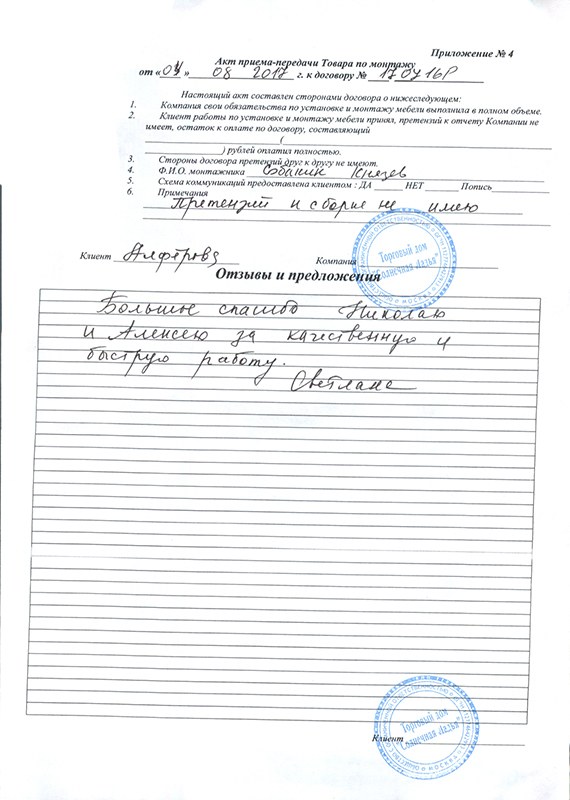 Приложение № 4
Акт приема-передачи Товара по монтажу
от «04» 08 2017 г. к договору № 170716Р
Настоящий акт составлен сторонами договора о нижеследующем:
1. Компания свои обязательства по установке и монтажу мебели выполнила в полном объеме.
2. Клиент работы по установке и монтажу мебели принял, претензий к отчету Компании не
имеет, остаток к оплате по договору, составляющий
(
) рублей оплатил полностью.
3. Стороны договора претензий друг к другу не имеют.
4. Ф.И.О. монтажника Собакин Князев
5. Схема коммуникаций предоставлена клиентом : ДА НЕТ Попись
6. Примечания
Претензий к сборке не имею
Клиент Алфёрова Компания
Торговый дом
"Солнечная Лезья"
Отзывы и предложения
Большое спасибо Николаю
и Алексею за качественную и
быструю работу.
Светлана
Торговый дом
"Солнечная Лезья"
Клиент